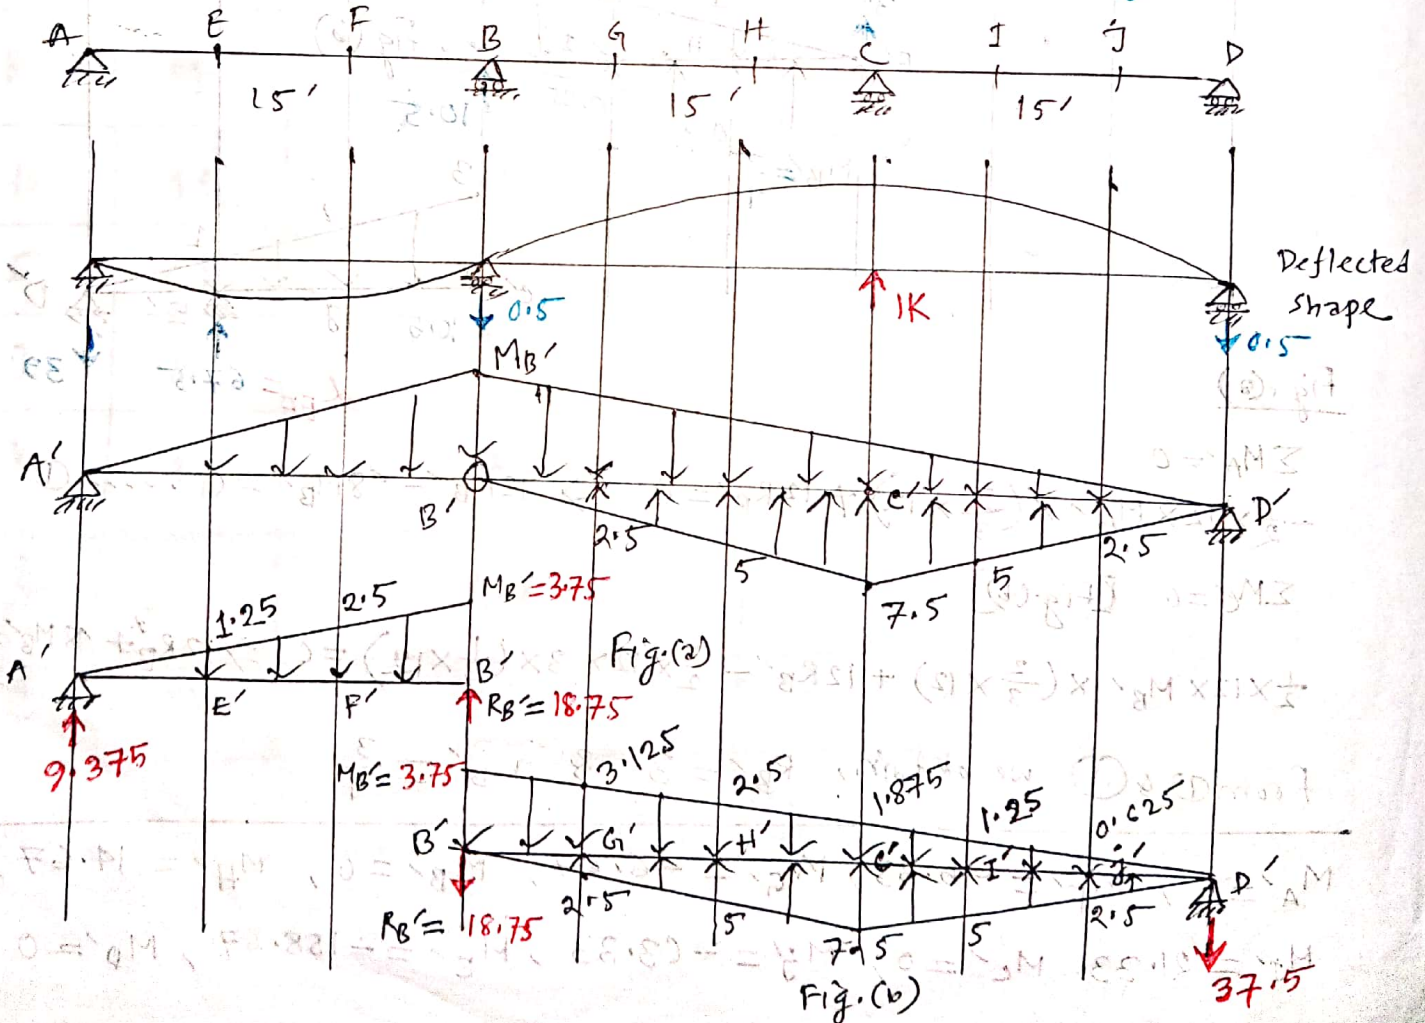 A E F B G H C I J D
15' 15' 15'
Deflected
shape
0.5 1K 0.5
MB'
A' B' C' D'
2.5 5 7.5 5 2.5
1.25 2.5 MB'=3.75
Fig.(a)
A' E' F' B'
RB'= 18.75
9.375
MB'= 3.75 3.125 2.5 1.875 1.25 0.625
B' G' H' C' I' J' D'
2.5 5 7.5 5 2.5
RB'= 18.75
37.5
Fig.(b)